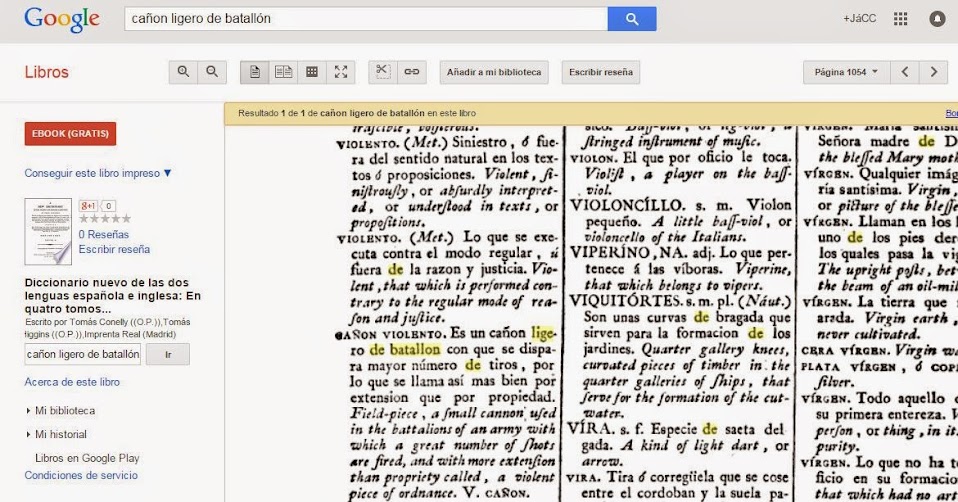 Google
cañon ligero de batallón
+JáCC
Libros
Añadir a mi biblioteca
Escribir reseña
Página 1054
EBOOK (GRATIS)
Conseguir este libro impreso ▼
g+1 0
0 Reseñas
Escribir reseña
Diccionario nuevo de las dos
lenguas española e inglesa: En
quatro tomos...
Escrito por Tomás Conelly ((O.P.)),Tomás
figgins ((O.P.)),Imprenta Real (Madrid)
cañon ligero de batallón
Ir
Acerca de este libro
Mi biblioteca
Mi historial
Libros en Google Play
Condiciones de servicio
Resultado 1 de 1 de cañon ligero de batallón en este libro
Bor
iraſcible, boiſterous.
VIOLENTO. (Met.) Siniestro, ó fue-
ra del sentido natural en los tex-
tos ó proposiciones. Violent, ſi-
niſtrouſly, or abſurdly interpret-
ed, or underſtood in texts, or
propoſitions.
VIOLENTO. (Met.) Lo que se exe-
cuta contra el modo regular, ú
fuera de la razon y justicia. Vio-
lent, that which is performed con-
trary to the regular mode of rea-
ſon and juſtice.
CAÑON VIOLENTO. Es un cañon lige-
ro de batallon con que se dispa-
ra mayor número de tiros, por
lo que se llama así mas bien por
extension que por propiedad.
Field-piece, a ſmall cannon uſed
in the battalions of an army with
which a great number of ſhots
are fired, and with more extenſion
than propriety called, a violent
piece of ordnance. V. CAÑON.
sico. Baſſ-viol, or leg-viol, a
ſtringed inſtrument of muſic.
VIOLON. El que por oficio le toca.
Violiſt, a player on the baſſ-
viol.
VIOLONCÍLLO. s. m. Violon
pequeño. A little baſſ-viol, or
violoncello of the Italians.
VIPERÍNO, NA. adj. Lo que per-
tenece á las víboras. Viperine,
that which belongs to vipers.
VIQUITÓRTES. s. m. pl. (Náut.)
Son unas curvas de bragada que
sirven para la formacion de los
jardines. Quarter gallery knees,
curvated pieces of timber in the
quarter galleries of ſhips, that
ſerve for the formation of the cut-
water.
VÍRA. s. f. Especie de saeta del
gada. A kind of light dart, or
arrow.
VIRA. Tira ó corregüela que se cose
entre el cordoban y la suela pa-
VÍRGEN. María santísi
Señora madre de D
the bleſſed Mary moth
VÍRGEN. Qualquier imág
ría santisima. Virgin,
or picture of the bleſſe
VÍRGEN. Llaman en los l
uno de los pies dere
los quales pasa la vig
The upright poſts, bet
the beam of an oil-mil
VÍRGEN. La tierra que
arada. Virgin earth,
never cultivated.
CERA VÍRGEN. Virgin wa
PLATA VÍRGEN, ó COP
ſilver.
VÍRGEN. Todo aquello
su primera entereza. V
perſon, or thing, in it
purity.
VÍRGEN. Lo que no ha t
ficio en su formacion
that which had no art